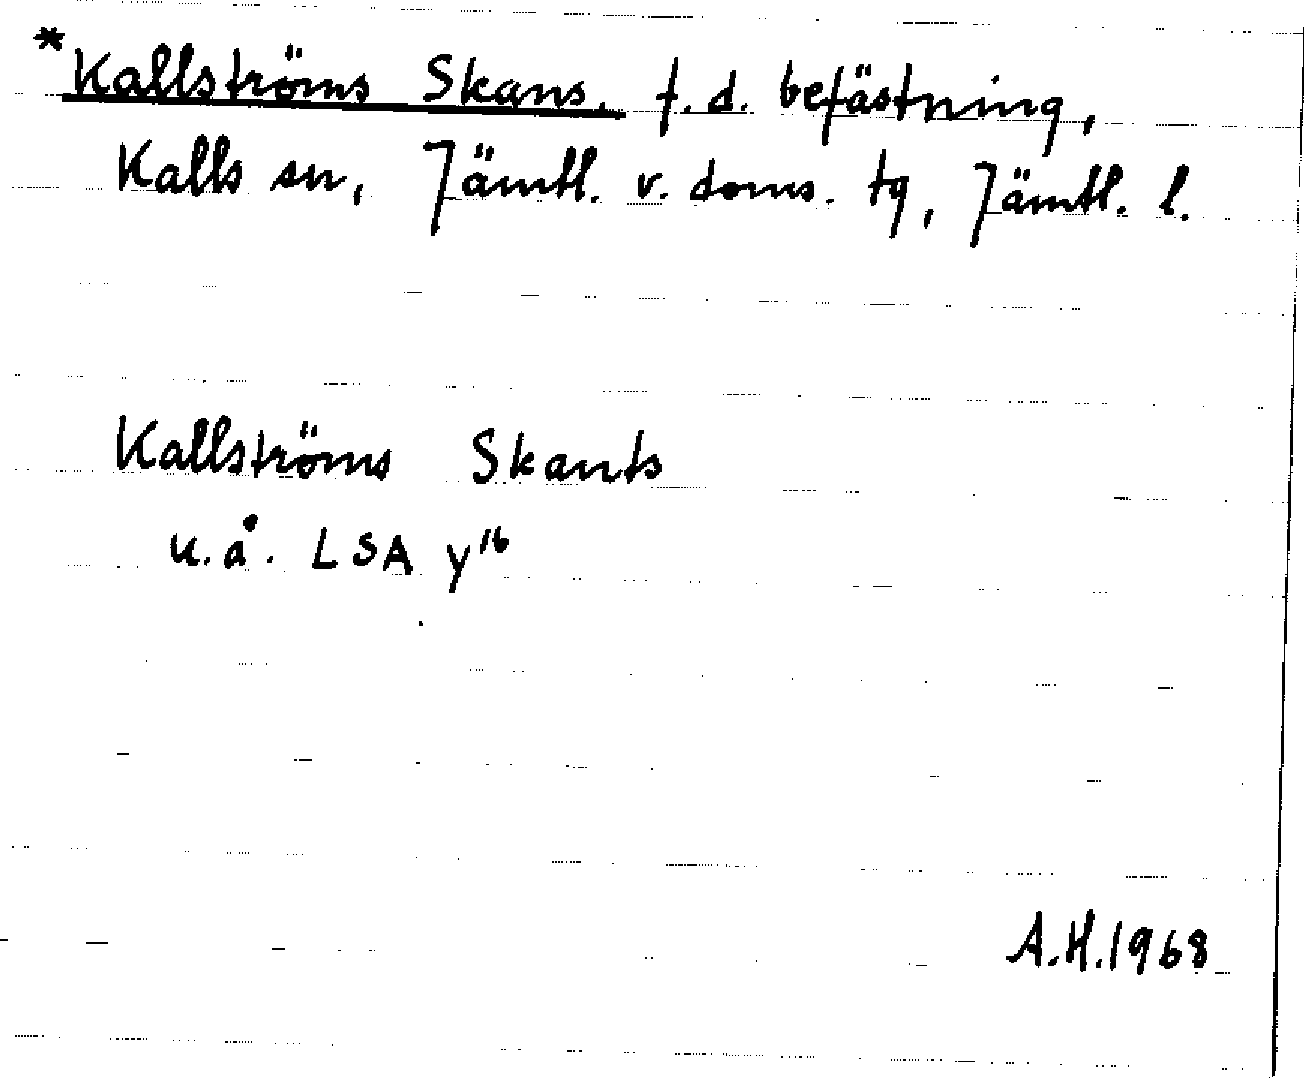 *Kallströms Skans. f.d. befästning,
Kalls sn, Jämtl. v. doms. tg, Jämtl. l.
Kallströms Skants
u.å. LSA y16
A.H.1968